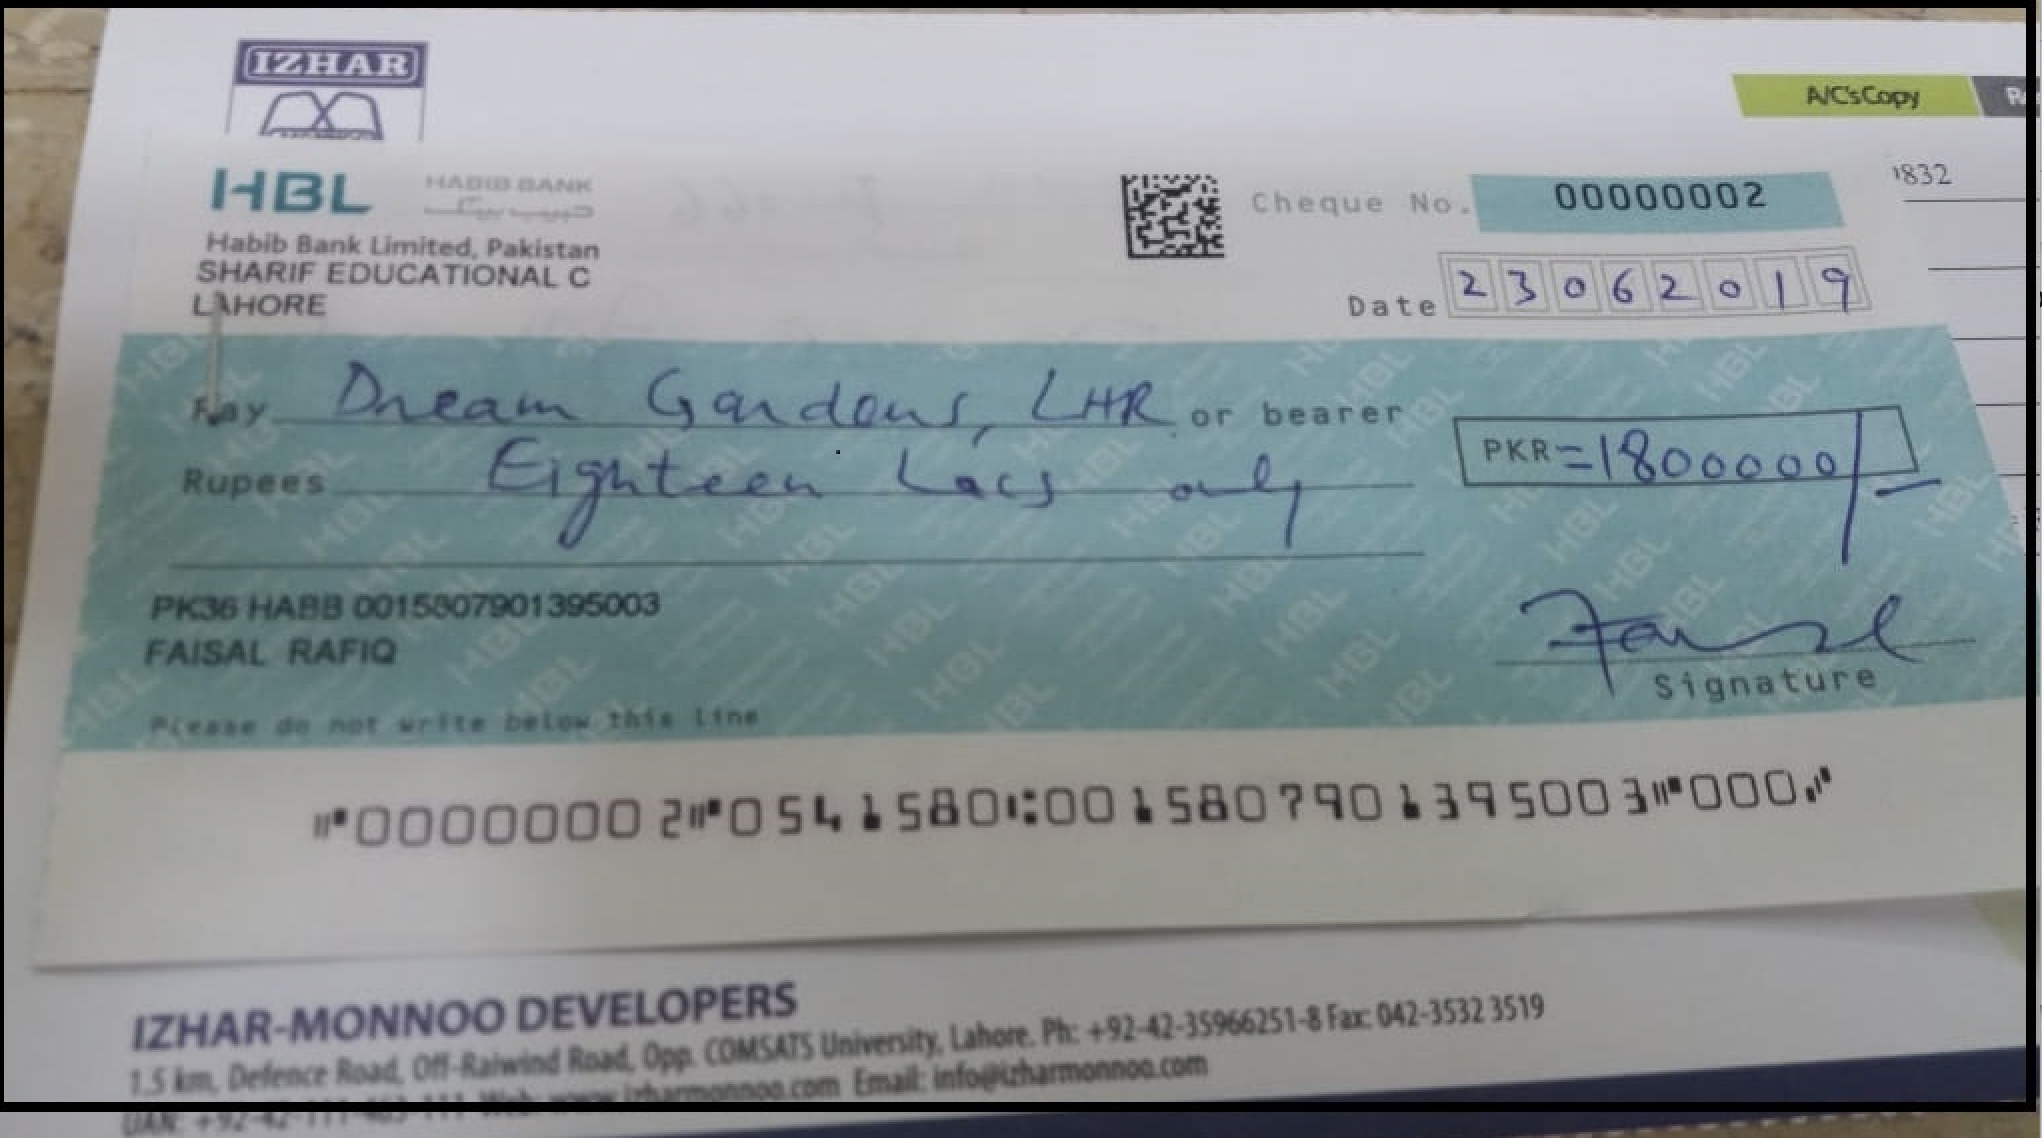 IZHAR
A/C's Copy
HBL HABIB BANK
حبیب بینک
1832
Cheque No. 00000002
Habib Bank Limited, Pakistan
SHARIF EDUCATIONAL C
LAHORE
Date 23062019
Pay Dream Gardens, LHR or bearer
Rupees Eighteen Lacs only
PKR =1800000/-
PK36 HABB 0015807901395003
FAISAL RAFIQ
Signature
Please do not write below this line
⑈00000002⑈0541580⑆0015807901395003⑈000⑈
IZHAR-MONNOO DEVELOPERS
1.5 km, Defence Road, Off-Raiwind Road, Opp. COMSATS University, Lahore. Ph: +92-42-35966251-8 Fax: 042-3532 3519
UAN: +92-42-111-463-111 Web: www.izharmonnoo.com Email: info@izharmonnoo.com